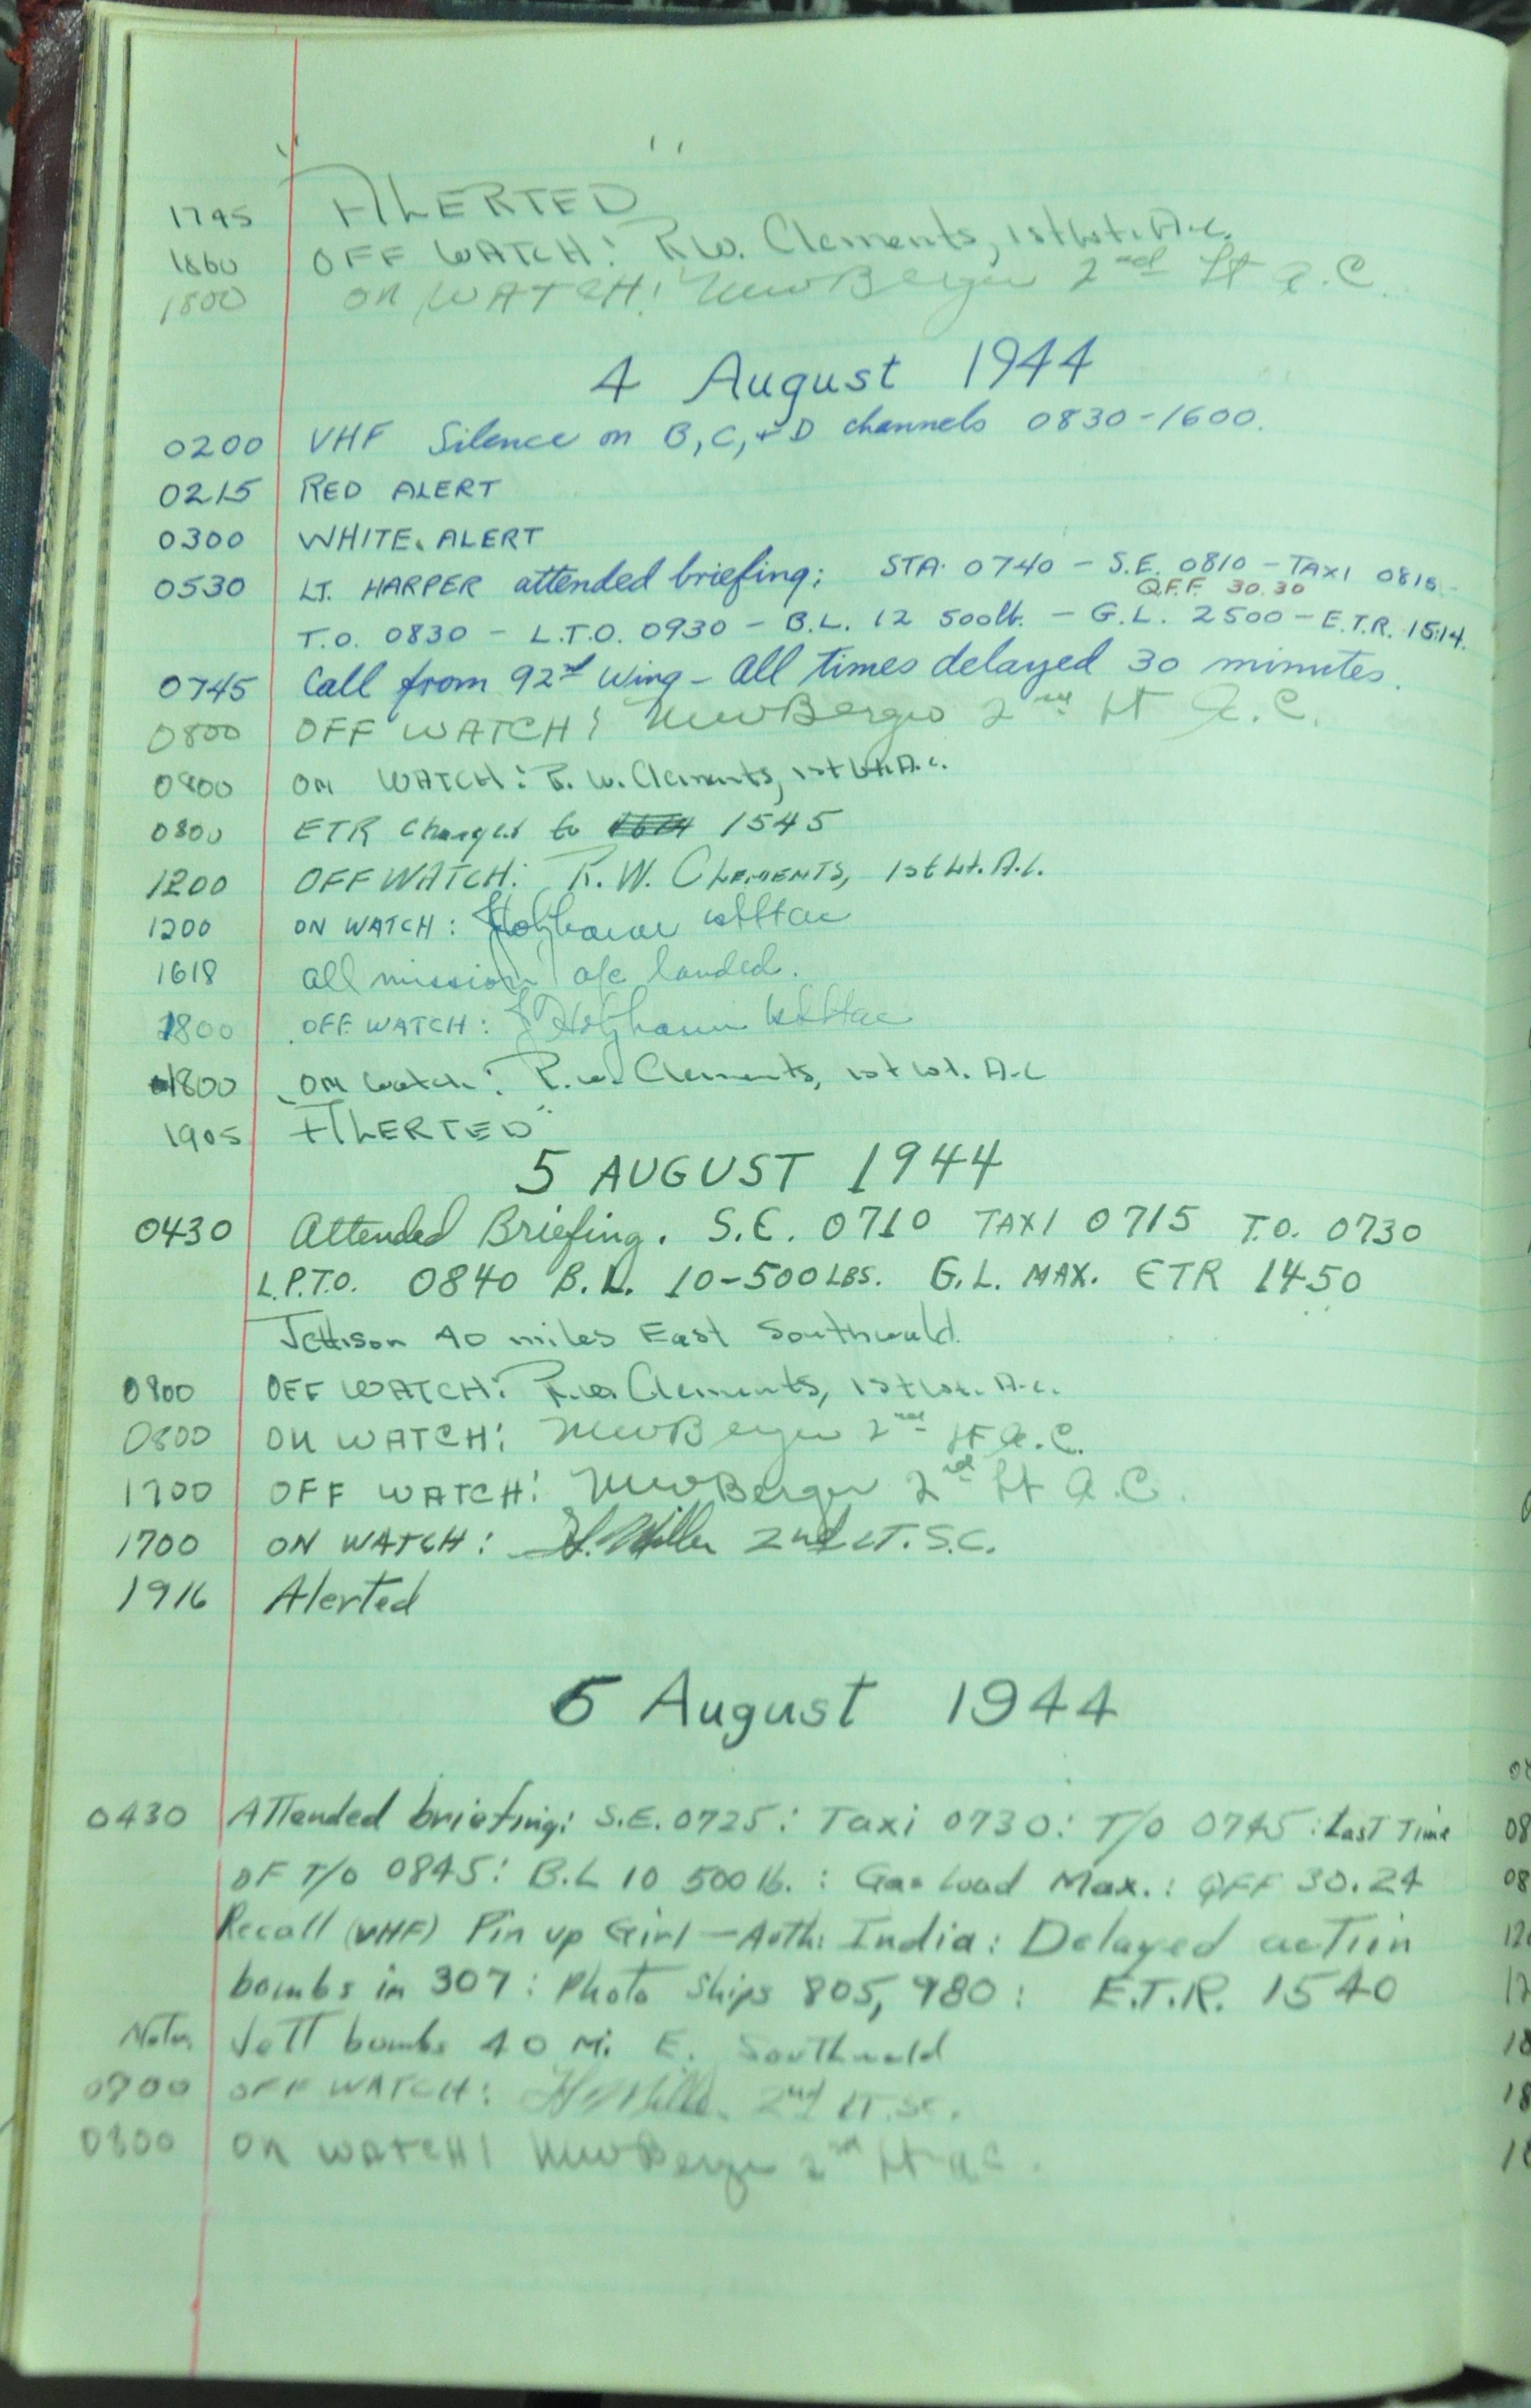 " "
1745 ALERTED
1800 OFF WATCH: R.W. Clements, 1st Lt. A.C.
1800 ON WATCH! MWBerger 2nd Lt A.C.
4 August 1944
0200 VHF Silence on B, C, + D channels 0830-1600.
0215 RED ALERT
0300 WHITE ALERT
0530 LT. HARPER attended briefing: STA. 0740 - S.E. 0810 - TAXI 0815 -
Q.F.F. 30.30
T.O. 0830 - L.T.O. 0930 - B.L. 12 500lb. - G.L. 2500 - E.T.R. 1514.
0745 Call from 92nd Wing - All times delayed 30 minutes.
0800 OFF WATCH! MWBerger 2nd Lt A.C.
0800 ON WATCH: R. W. Clements, 1st Lt. A.C.
0800 ETR Changed to 1545
1200 OFF WATCH: R. W. CLEMENTS, 1st Lt. A.C.
1200 ON WATCH: 1st Lt ac
1618 all mission a/c landed.
1800 OFF WATCH: 1st Lt ac
1800 ON Watch: R.W. Clements, 1st Lt. A.C
1905 ALERTED"
5 AUGUST 1944
0430 Attended Briefing. S.E. 0710 TAXI 0715 T.O. 0730
L.P.T.O. 0840 B.L. 10-500 LBS. G.L. MAX. ETR 1450
Jettison 40 miles East Southwald.
0800 OFF WATCH: R.W. Clements, 1st Lt. A.C.
0800 ON WATCH: MWBerger 2nd Lt A.C.
1700 OFF WATCH: MWBerger 2nd Lt A.C.
1700 ON WATCH: H. Miller 2nd LT. S.C.
1916 Alerted
6 August 1944
0430 Attended briefing: S.E. 0725: Taxi 0730: T/O 0745: Last Time
OF T/O 0845: B.L 10 500 lb.: Gas load Max.: QFF 30.24
Recall (VHF) Pin up Girl - Auth: India: Delayed action
bombs in 307: Photo Ships 805, 980: E.T.R. 1540
Note Jett bombs 40 Mi E. Southwald
0800 OFF WATCH: H Miller 2nd LT. SC.
0800 ON WATCH! MWBerger 2nd Lt AC.